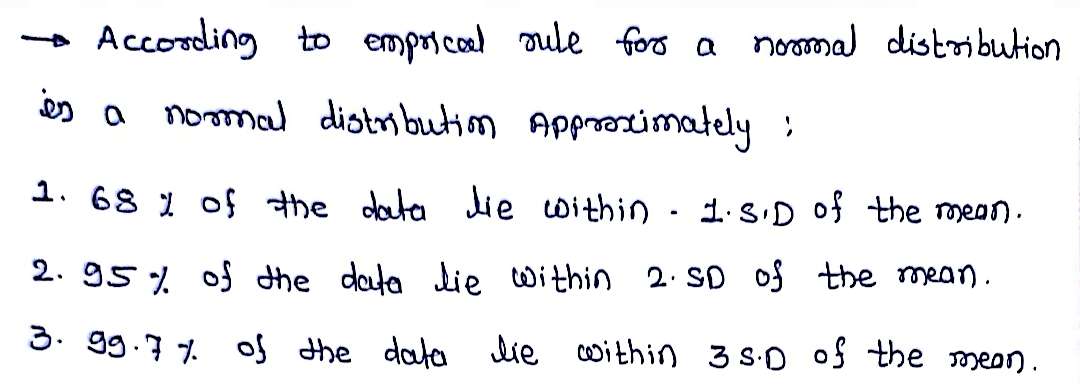 → According to emprical rule for a normal distribution
in a normal distribution Approximately :
1. 68 % of the data lie within - 1.S.D of the mean.
2. 95 % of the data lie within 2. SD of the mean.
3. 99.7 % of the data lie within 3 S.D of the mean.